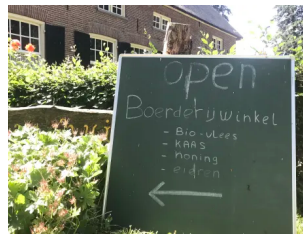 open
Boerderijwinkel
- Bio-vlees
- KAAS
- honing
- eieren